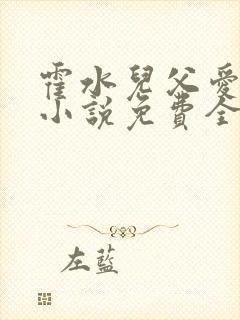 霍水兒父愛
小說免費全
左藍